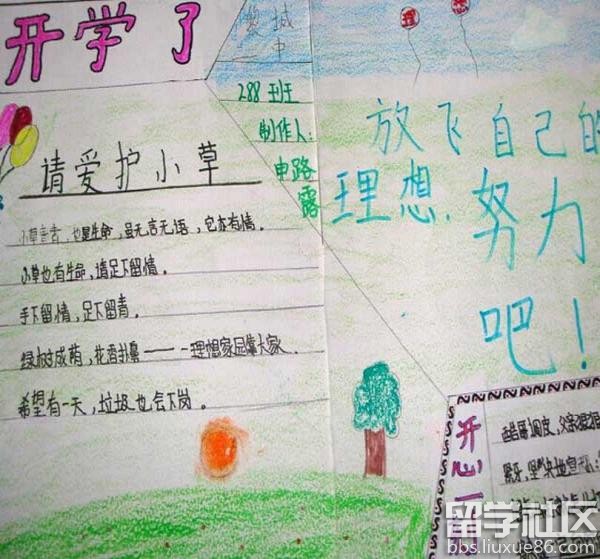 开学了
城
中
288班
制作人:
申路
露
理
想
放飞自己的
理想,努力
吧!
请爱护小草
也是生命,虽无言无语,它亦有情。
小草也有生命,请足下留情。
手下留情,足下留青。
绿树成荫,花香扑鼻——理想家园靠大家
希望有一天,垃圾也会下岗。
开心一
调皮,父亲
留学社区
bbs.liuxue86.com